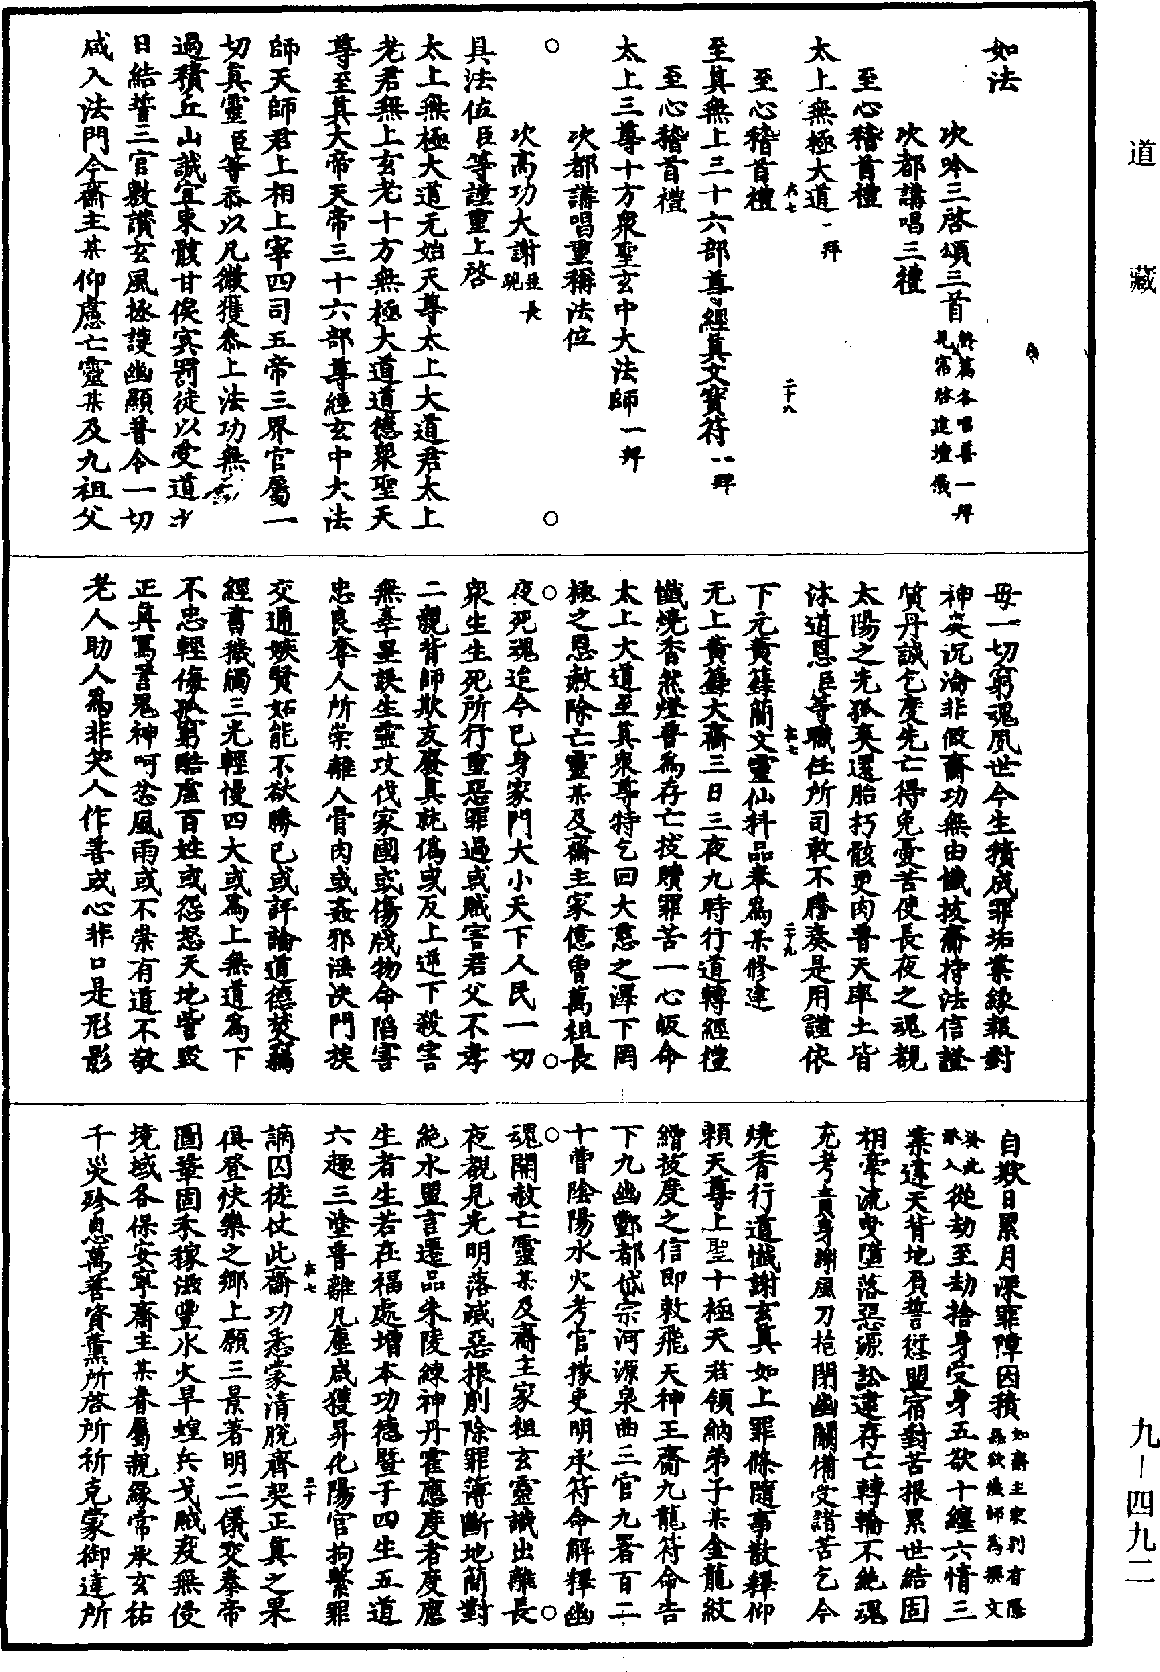 道藏
九—四九二
如法
次吟三啓頌三首
次都講唱三禮
至心稽首禮
太上無極大道一拜
至心稽首禮
至真無上三十六部尊經真文寶符一拜
至心稽首禮
太上三尊十方衆聖玄中大法師一拜
次都講唱重稱法位
次高功大謝
具法位臣等謹重上啓
太上無極大道元始天尊太上大道君太上
老君無上玄老十方無極大道道德衆聖天
尊至真大帝天帝三十六部尊經玄中大法
師天師君上相上宰四司五帝三界官屬一
切真靈臣等忝以凡微獲叅上法功無
過積丘山誠宜束骸甘俟冥罰徒以受道
日結誓三官敷讚玄風拯護幽顯普令一切
咸入法門今齋主某仰慮亡靈某及九祖父
母一切窮魂夙世今生積成罪垢業緣報對
神交沉淪非假齋功無由懺拔齋持法信證
質丹誠乞度先亡得免憂苦使長夜之魂覩
太陽之光狐爽還胎朽骸更肉普天率土皆
沐道恩臣等職任所司敢不謄奏是用謹依
下元黃籙簡文靈仙科品奉爲某修建
无上黃籙大齋三日三夜九時行道轉經禮
懺燒香然燈普爲存亡拔贖罪苦一心皈命
太上大道至真衆尊特乞回大慈之澤下罔
極之恩赦除亡靈某及齋主家億曾萬祖長
夜死魂迨今已身家門大小天下人民一切
衆生生死所行重惡罪過或賊害君父不孝
二親背師欺友廢真就僞或反上逆下殺害
無辜枉誤生靈攻伐家國或傷殘物命陷害
忠良奪人所崇離人骨肉或姦邪淫泆門族
交通嫉賢妬能不欲勝己或評論道德焚竊
經書穢觸三光輕慢四大或爲上無道爲下
不忠輕侮孤窮賠虐百姓或怨怒天地訾毀
正真罵詈鬼神呵忿風雨或不崇有道不敬
老人助人爲非笑人作善或心非口是形影
自欺日累月深罪障因積如齋主家別有隱
惡欲懺師爲撰文
從此入從劫至劫捨身受身五欲十纏六情三
業違天背地負誓愆盟宿對苦根累世結固
相牽流曳墮落惡源訟逮存亡轉輪不絶魂
充考責身謝風刀抱閉幽關備受諸苦乞今
燒香行道懺謝玄真如上罪條隨事散釋仰
頼天尊上聖十極天君領納弟子某金龍紋
繒拔度之信即敕飛天神王齋九龍符命告
下九幽酆都岱宗河源泉曲三官九署百二
十曹陰陽水火考官掾吏明承符命解釋幽
魂開赦亡靈某及齋主家祖玄靈識出離長
夜覩見光明落滅惡根削除罪簿斷地簡對
絶水盟言遷品朱陵練神丹霍應度者度應
生者生若在福處增本功德暨于四生五道
六趣三塗普離凡塵咸獲昇化陽官拘繫罪
謫囚徒仗此齋功悉蒙清脫齊契正真之果
俱登快樂之鄉上願三景著明二儀交泰帝
圖鞏固禾稼滋豐水火旱蝗兵戈賊疫無侵
境域各保安寧齋主某眷屬親緣常承玄祐
千災殄息萬善資薰所啓所祈克蒙御達所